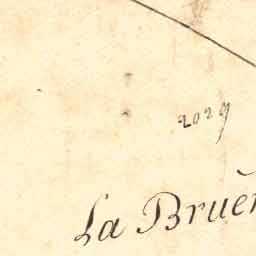 2029
La Bruèr